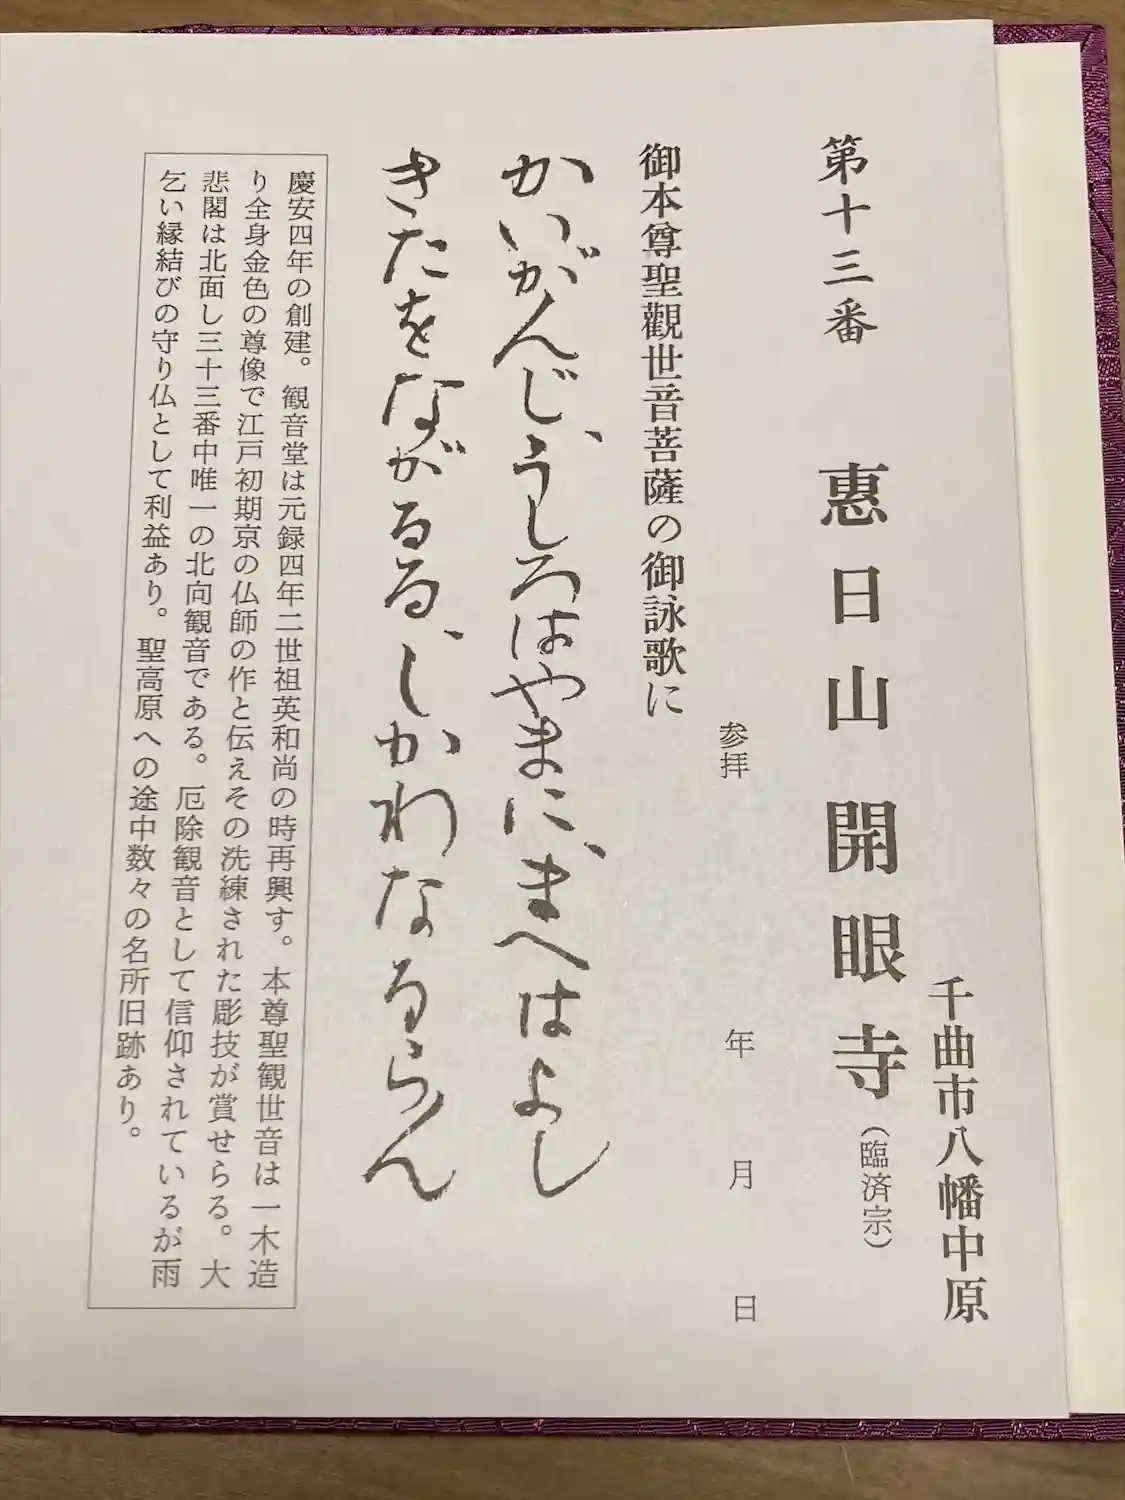 千曲市八幡中原
第十三番 惠日山開眼寺（臨済宗）
参拝 年 月 日
御本尊聖觀世音菩薩の御詠歌に
かいがんじ、うしろはやまに、まへはよし
きたをながるる、しかわなるらん
慶安四年の創建。観音堂は元録四年二世祖英和尚の時再興す。本尊聖観世音は一木造
り全身金色の尊像で江戸初期京の仏師の作と伝えその洗練された彫技が賞せらる。大
悲閣は北面し三十三番中唯一の北向観音である。厄除観音として信仰されているが雨
乞い縁結びの守り仏として利益あり。聖高原への途中数々の名所旧跡あり。